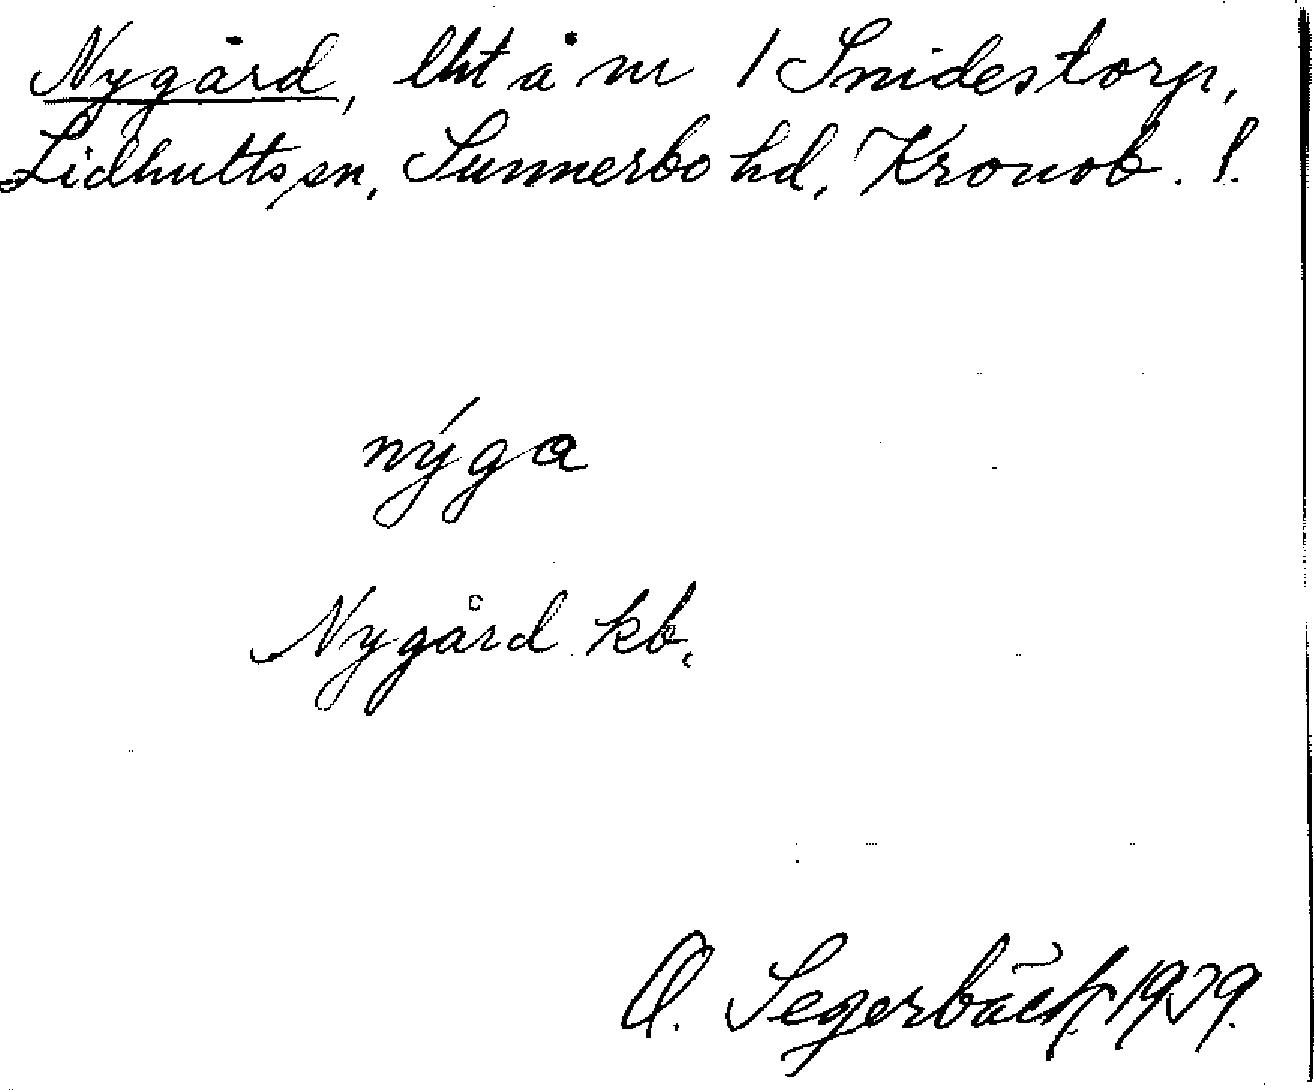 Nygård, lht å nr 1 Snidestorp,
Lidhults sn, Sunnerbo hd, Kronob. l.
nýga
Nygård kb.
O. Segerbäck 1929.